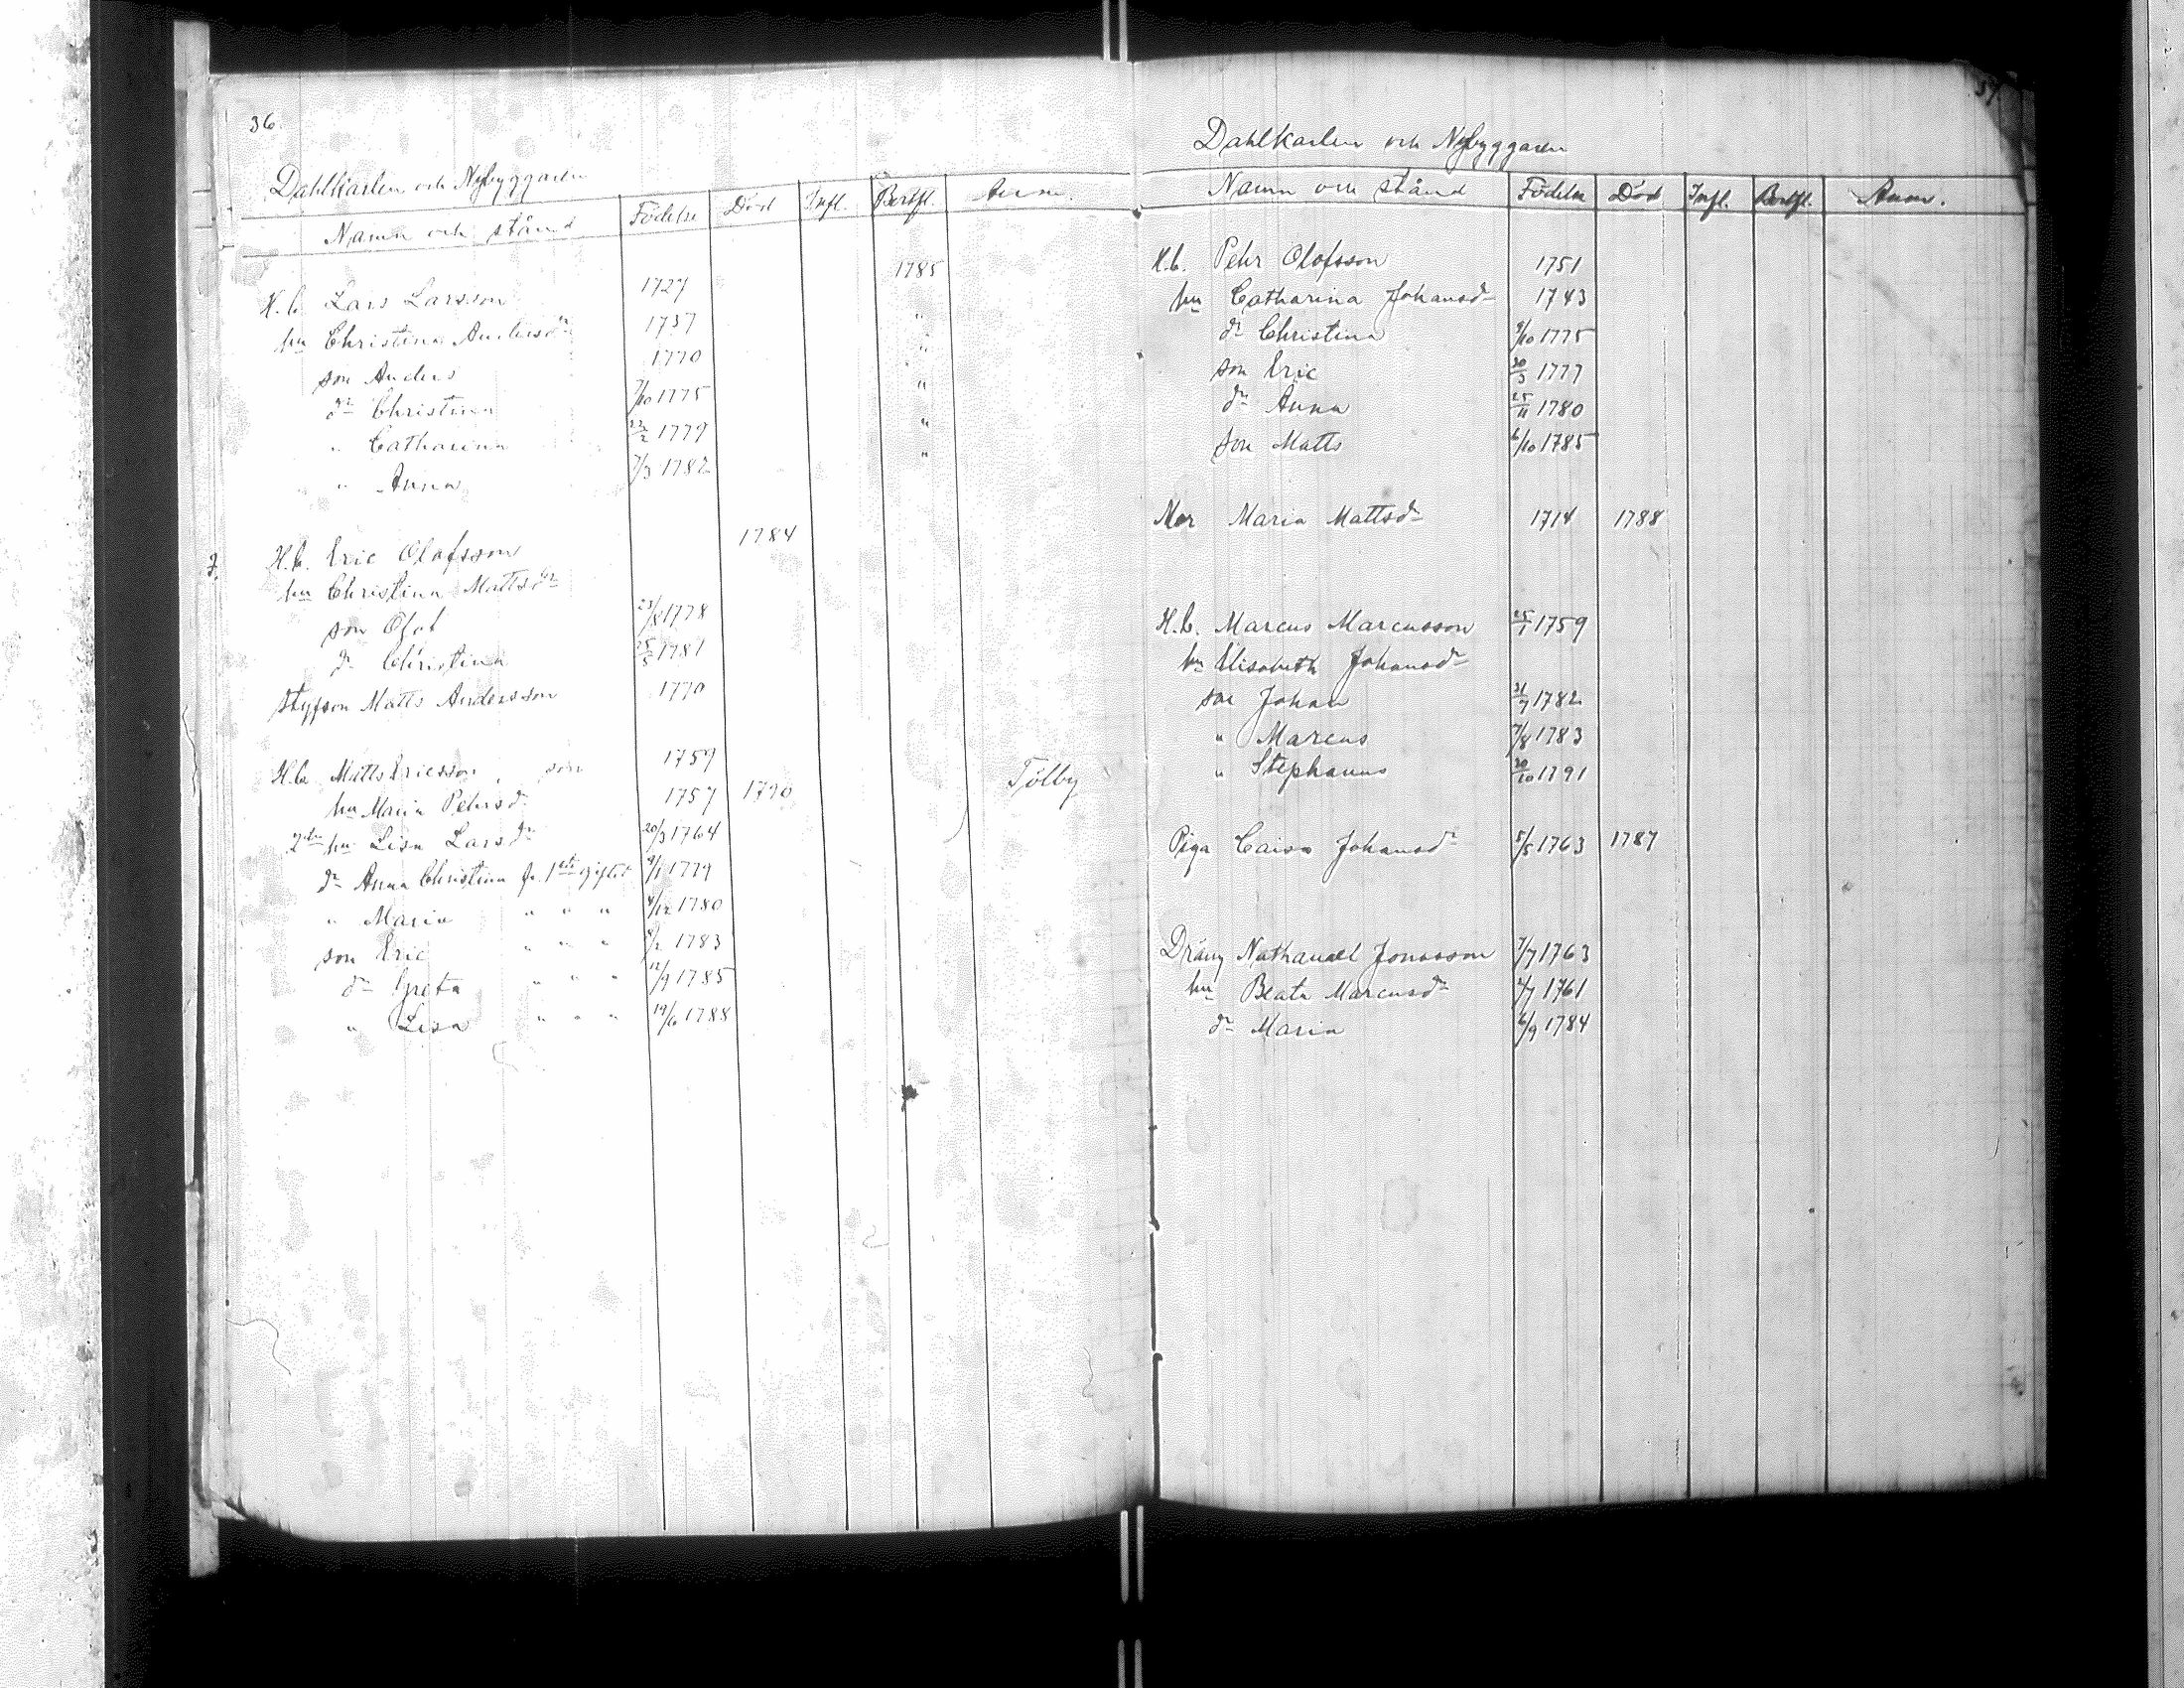 36.
Dahlkarlen och Nybyggaren
Namn och stånd Födelse Död Infl. Bortfl. Anm.
H.b. Lars Larsson 1727 1785
hu Christina Andersdr 1737 "
son Anders 1770 "
dr Christina 7/10 1775 "
" Catharina 22/2 1779 "
" Anna 7/3 1782 "
H.b. Eric Olofsson 1784
hu Christina Mattsdr
son Olof 23/8 1778
dr Christina 25/5 1781
Styfson Matts Andersson 1770
H.b. Matts Ericsson, son 1759
hu Maria Pehrsdr 1757 1790 Tölby
2dra hu Lisa Larsdr 20/3 1764
dr Anna Christina fr. 1sta giftet 9/1 1779
" Maria " " " 4/12 1780
son Eric " " " /2 1783
dr Greta " " " 12/9 1785
" Lisa " " " 19/6 1788
37
Dahlkarlen och Nybyggaren
Namn och stånd Födelse Död Infl. Bortfl. Anm.
H.b. Pehr Olofsson 1751
hu Catharina Johansdr 1743
dr Christina 9/10 1775
son Eric 30/3 1777
dr Anna 25/11 1780
son Matts 6/10 1785
Mor Maria Mattsdr 1714 1788
H.b. Marcus Marcusson 25/1 1759
hu Elisabeth Johansdr
son Johan 31/7 1782
" Marcus 7/8 1783
" Stephanus 30/10 1791
Piga Caisa Johansdr 5/5 1763 1787
Dräng Nathanael Jonasson 7/7 1763
hu Beata Marcusdr 2/7 1761
dr Maria 6/9 1784